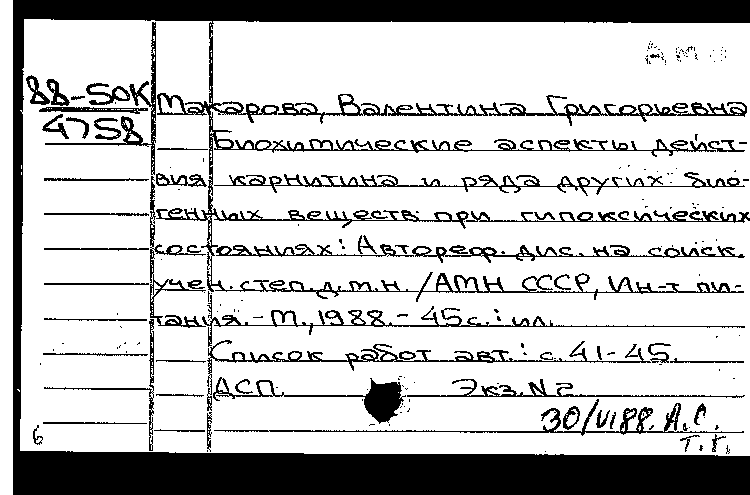 88-50К
4758
Макарова, Валентина Григорьевна
Биохимические аспекты дейст-
вия карнитина и ряда других био-
генных веществ при гипоксических
состояниях: Автореф. дис. на соиск.
учен. степ. д.м.н. /АМН СССР, Ин-т пи-
тания. - М., 1988. - 45 с.: ил.
Список работ авт.: с. 41-45.
ДСП. Экз. N2
30/VI88. А.С.
Т.К.
6